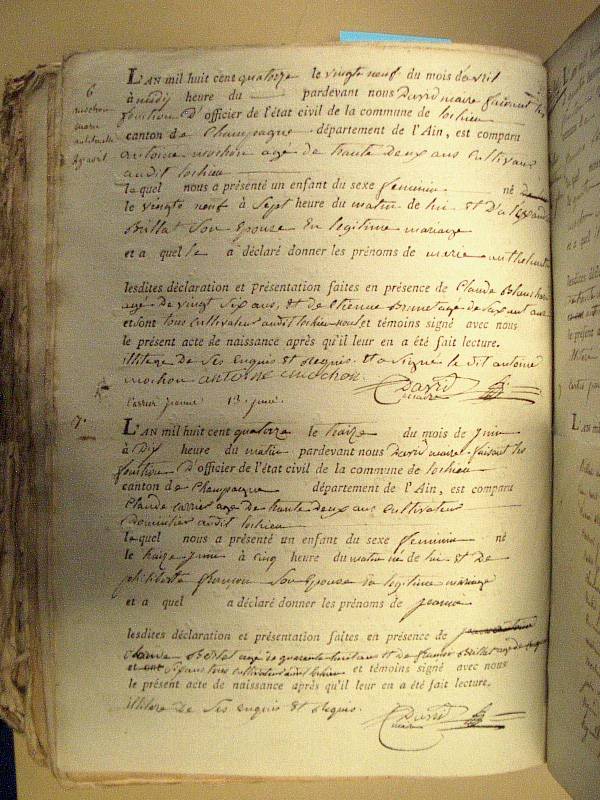 6
mochon
marie
anthelmette
29 avril
L'AN mil huit cent quatorze le vingt neuf du mois d'avril
à midy heure du pardevant nous David maire faisant les
fonction D'officier de l'état civil de la commune de lochieu
canton de Champagne département de l'Ain, est comparu
antoine mochon agé de trante deux ans cultivateur
audit lochieu
lequel nous a présenté un enfant du sexe feminin né
le vingt neuf à Sept heure du matin de lui et D'
Brillat Son Epouse En legitime mariage
et a quel le a déclaré donner les prénoms de marie anthelmette
lesdites déclaration et présentation faites en présence de Claude
agé de vingt Six ans, et de Etienne agé de Soixant ans
et Sont tous cultivateur audit lochieu et témoins signé avec nous
le présent acte de naissance après qu'il leur en a été fait lecture.
illiterés de Ses enquis et requis. et a Signé le dit antoine
mochon antoine mochon.
David
maire
Carrier jeanne 13 juin.
7.
L'AN mil huit cent quatorze le traize du mois de juin
à Dix heure du matin pardevant nous David maire faisant les
fonction D'officier de l'état civil de la commune de lochieu
canton de Champagne département de l'Ain, est comparu
Claude Carrier agé de trante deux ans cultivateur
Domicilier audit lochieu
lequel nous a présenté un enfant du sexe feminin né
le traize juin à cinq heure du matin né de lui et De
philiberte Son Epouse En legitime mariage
et a quel a déclaré donner les prénoms de jeanne
lesdites déclaration et présentation faites en présence de
Claude agé de quarente huit ans et de Brillat agé de
ans tous cultivateur audit lochieu et témoins signé avec nous
le présent acte de naissance après qu'il leur en a été fait lecture.
illiteré De Ses enquis et requis.
David
maire